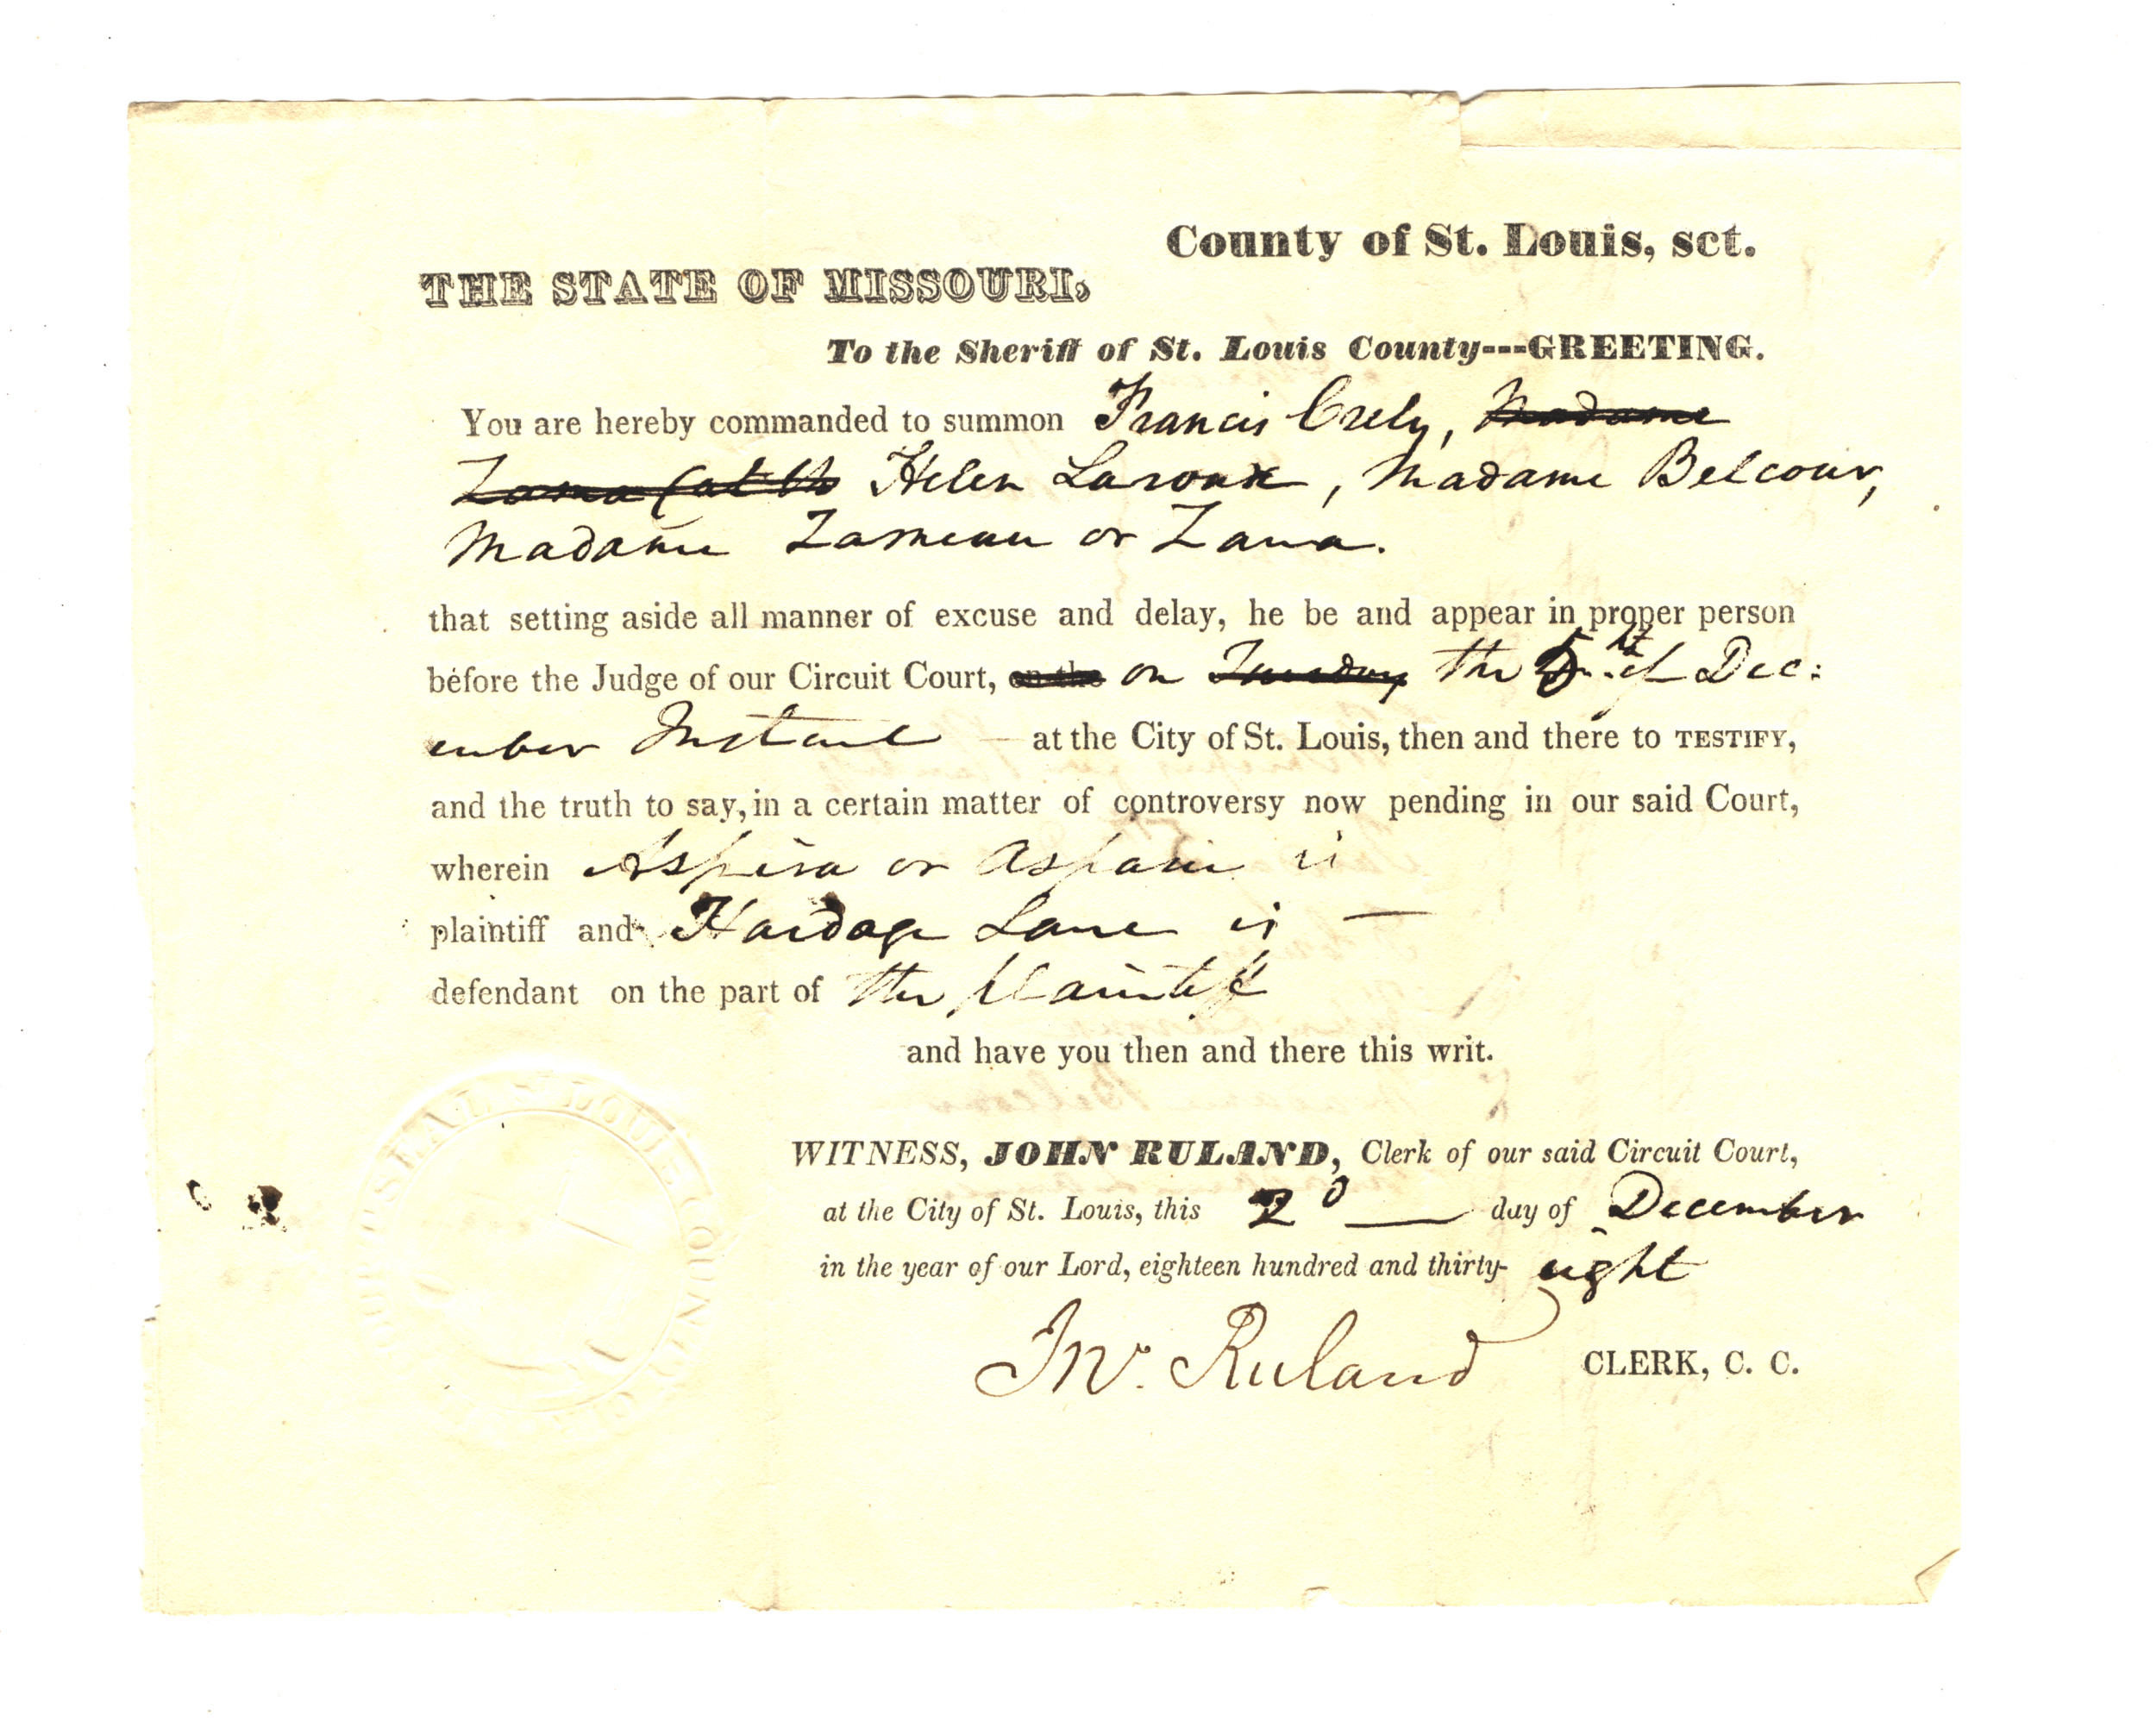 County of St. Louis, sct.
THE STATE OF MISSOURI,
To the Sheriff of St. Louis County---GREETING.
You are hereby commanded to summon Francis Crely, Madame
Helen Laroux, Madame Belcour,
Madame Lameau or Lana.
that setting aside all manner of excuse and delay, he be and appear in proper person
before the Judge of our Circuit Court, on the on Tuesday the 5th of Dec:
ember Instant at the City of St. Louis, then and there to TESTIFY,
and the truth to say, in a certain matter of controversy now pending in our said Court,
wherein Aspisa or Aspasia is
plaintiff and Hardage Lane is —
defendant on the part of the plaintiff
and have you then and there this writ.
WITNESS, JOHN RULAND, Clerk of our said Circuit Court,
at the City of St. Louis, this 2d day of December
in the year of our Lord, eighteen hundred and thirty- eight
Jno. Ruland CLERK, C. C.
SEAL ST LOUIS COUNTY CIRCUIT COURT